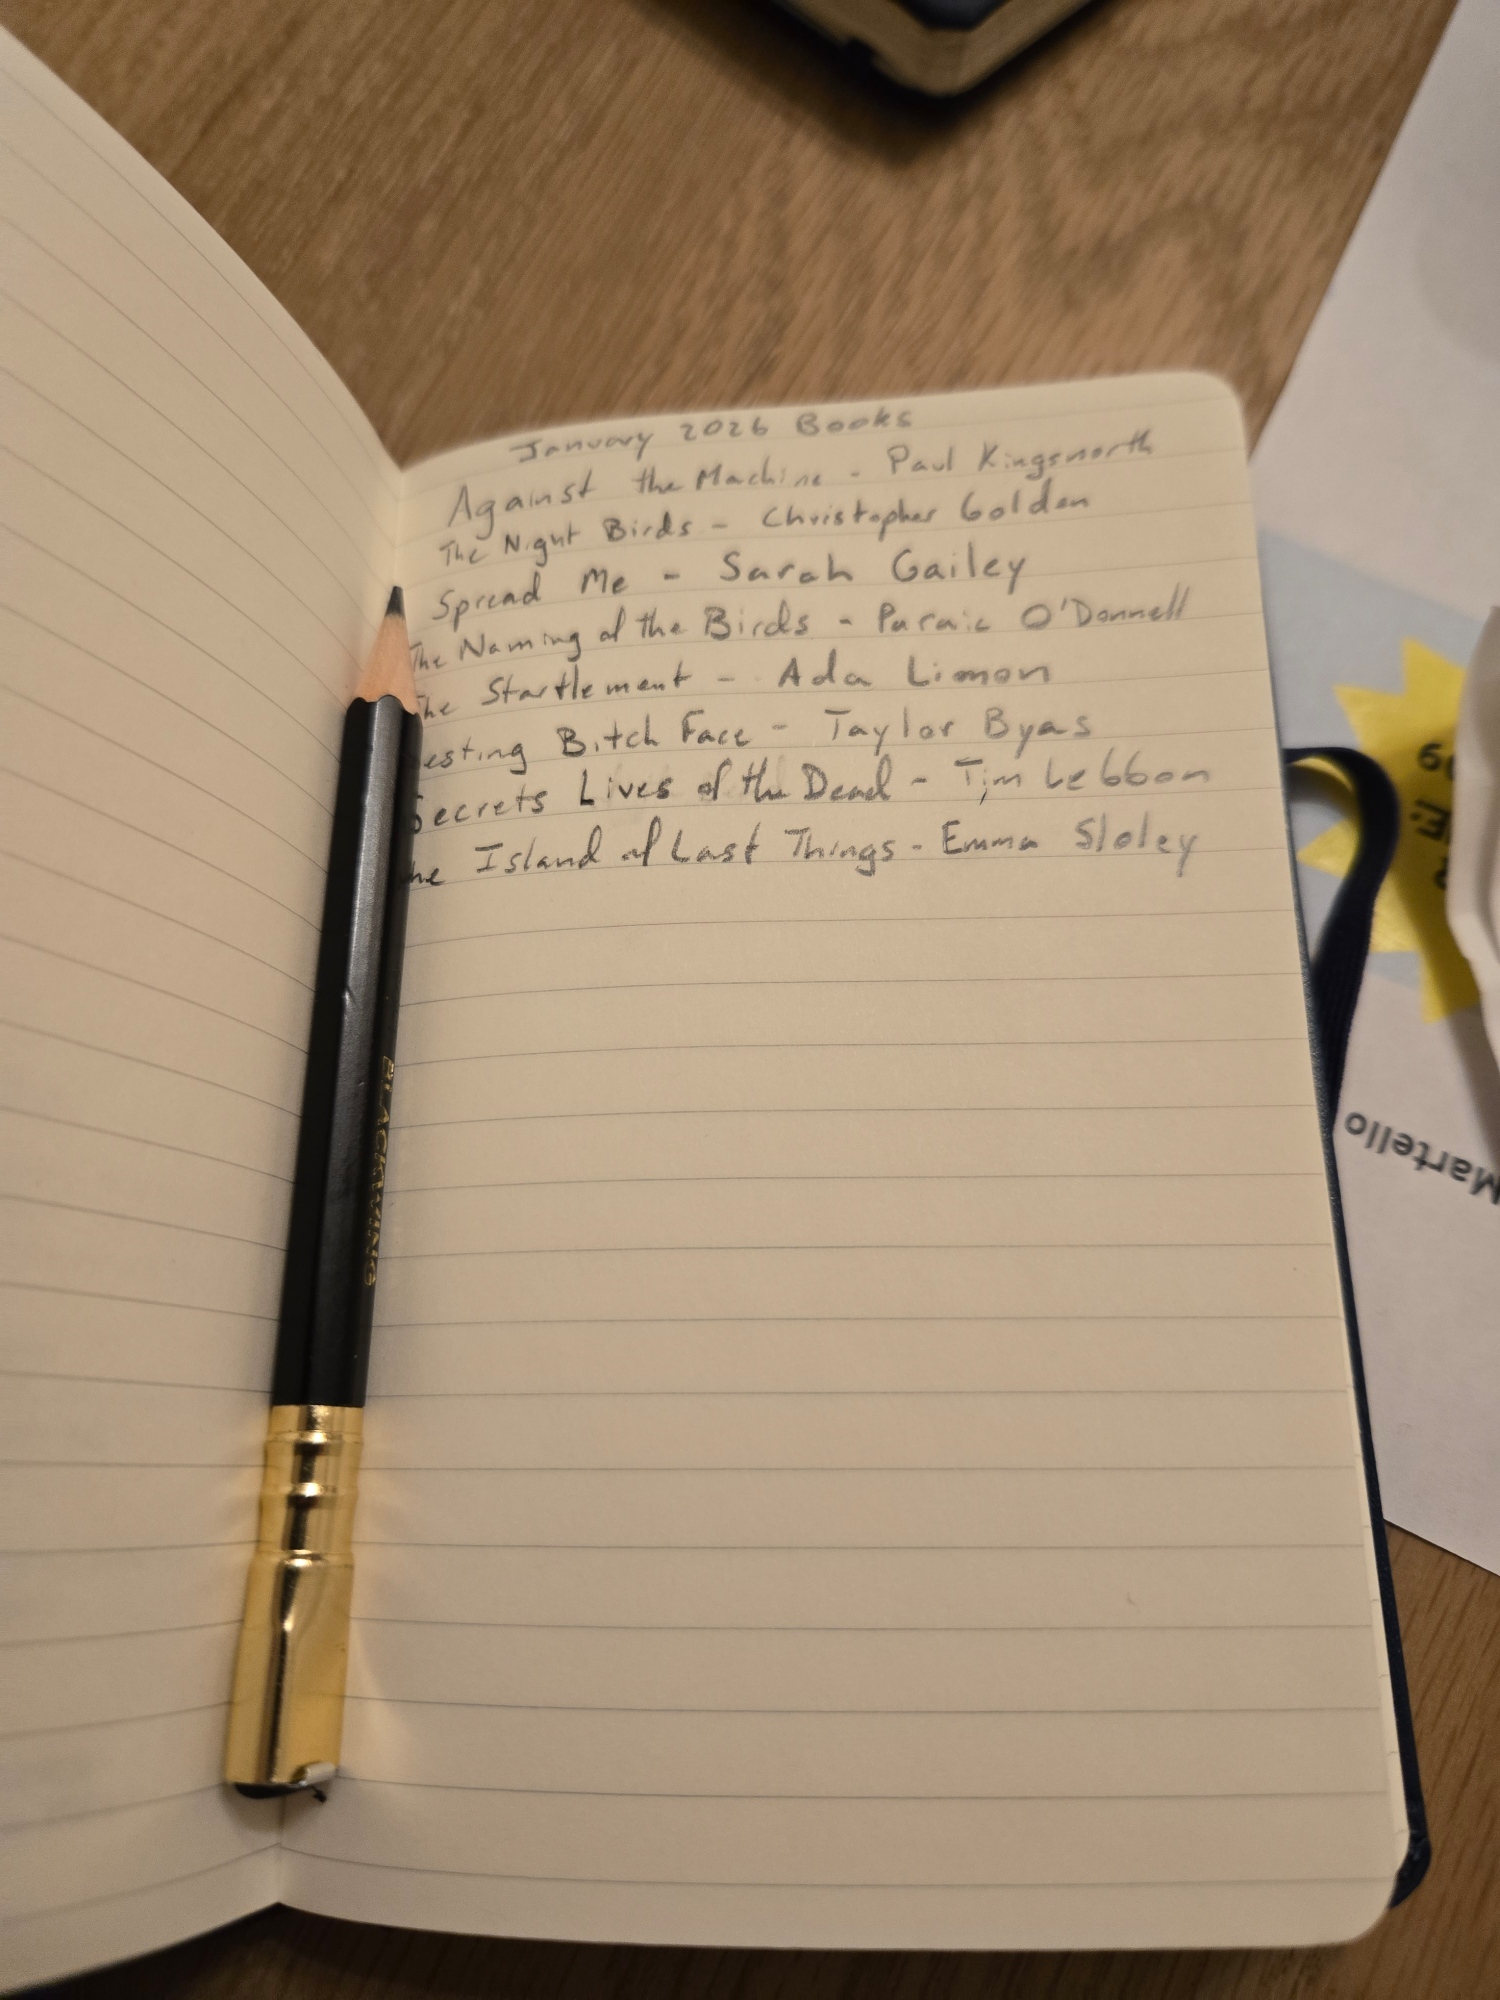 January 2026 Books
Against the Machine - Paul Kingsnorth
The Night Birds - Christopher Golden
Spread Me - Sarah Gailey
The Naming of the Birds - Paraic O'Donnell
The Startlement - Ada Limon
esting Bitch Face - Taylor Byas
Secrets Lives of the Dead - Tim Lebbon
he Island of Last Things - Emma Sloley
BLACKWING
Martello